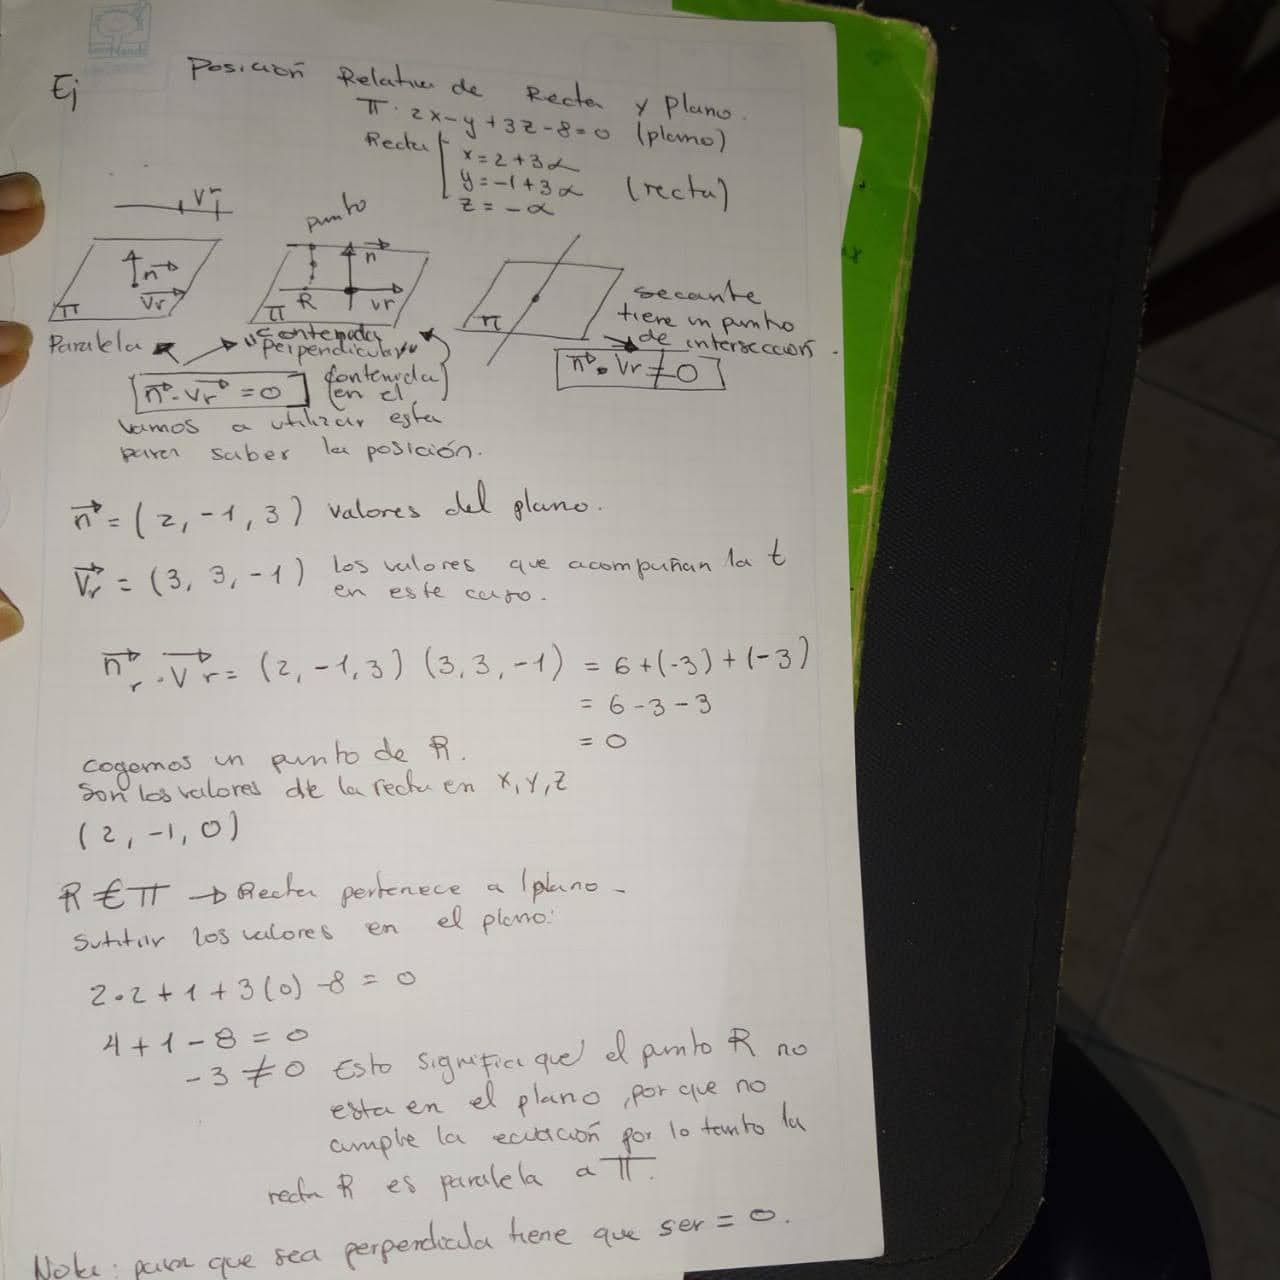 Ej
Posición Relativa de Recta y Plano.
π: 2x-y+3z-8=0 (plano)
Recta { x=2+3α
y=-1+3α (recta)
z=-α
Vr
punto
n
Vr
π
n
R
vr
π
π
Paralela
"contenida
perpendicular"
(contenida
en el)
secante
tiere un punto
de intersección.
n·Vr=0
n·Vr≠0
Vamos a utilizar esta
para saber la posición.
n = (2, -1, 3) Valores del plano.
Vr = (3, 3, -1) Los valores que acompañan la t
en este caso.
nr · Vr = (2, -1, 3) (3, 3, -1) = 6+(-3)+(-3)
= 6-3-3
= 0
cogemos un punto de R.
Son los valores de la recta en x, y, z
(2, -1, 0)
R ∈ π → Recta pertenece al plano-
Sutituir los valores en el plano:
2·2+1+3(0)-8=0
4+1-8=0
-3≠0 Esto significa que el punto R no
esta en el plano, por que no
cumple la ecuación por lo tanto la
recta R es paralela a π.
Nota: para que sea perpendicula tiene que ser = 0.